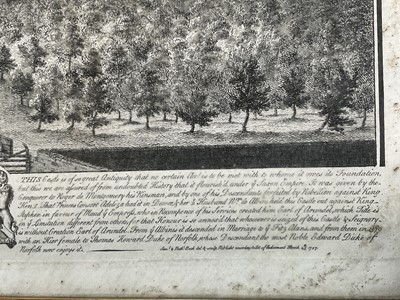 THIS Castle is of so great Antiquity that no certain Acct. is to be met with to whome it owes its Foundation,
but this we are assured of from undoubted History that it flourish'd under ye Saxon Empire. It was given by the
Conqueror to Roger de Montgomery his Kinsman, and by one of his Descendants forfeited by Rebellion against King
Hen. 1. That Princes Consort Adeliza had it in Dower, & her 2d. Husband Wm. de Albini held this Castle out against King
Stephen in favour of Maud ye Empress, who in Recompence of his Services created him Earl of Arundel, which Title is
in ye Limitation different from others, for that Honour is so annex'd that whosoever is possess'd of this Castle & Seignory
is without Creation Earl of Arundel. From ye Albinis it descended in Marriage to ye Fitz Alans, and from them in
with an Heir female to Thomas Howard Duke of Norfolk, whose Descendant the most Noble Edward Duke of
Norfolk now enjoys it.
Saml. & Nathl. Buck del: & sculp: Publish'd according to Act of Parliament March 1737.